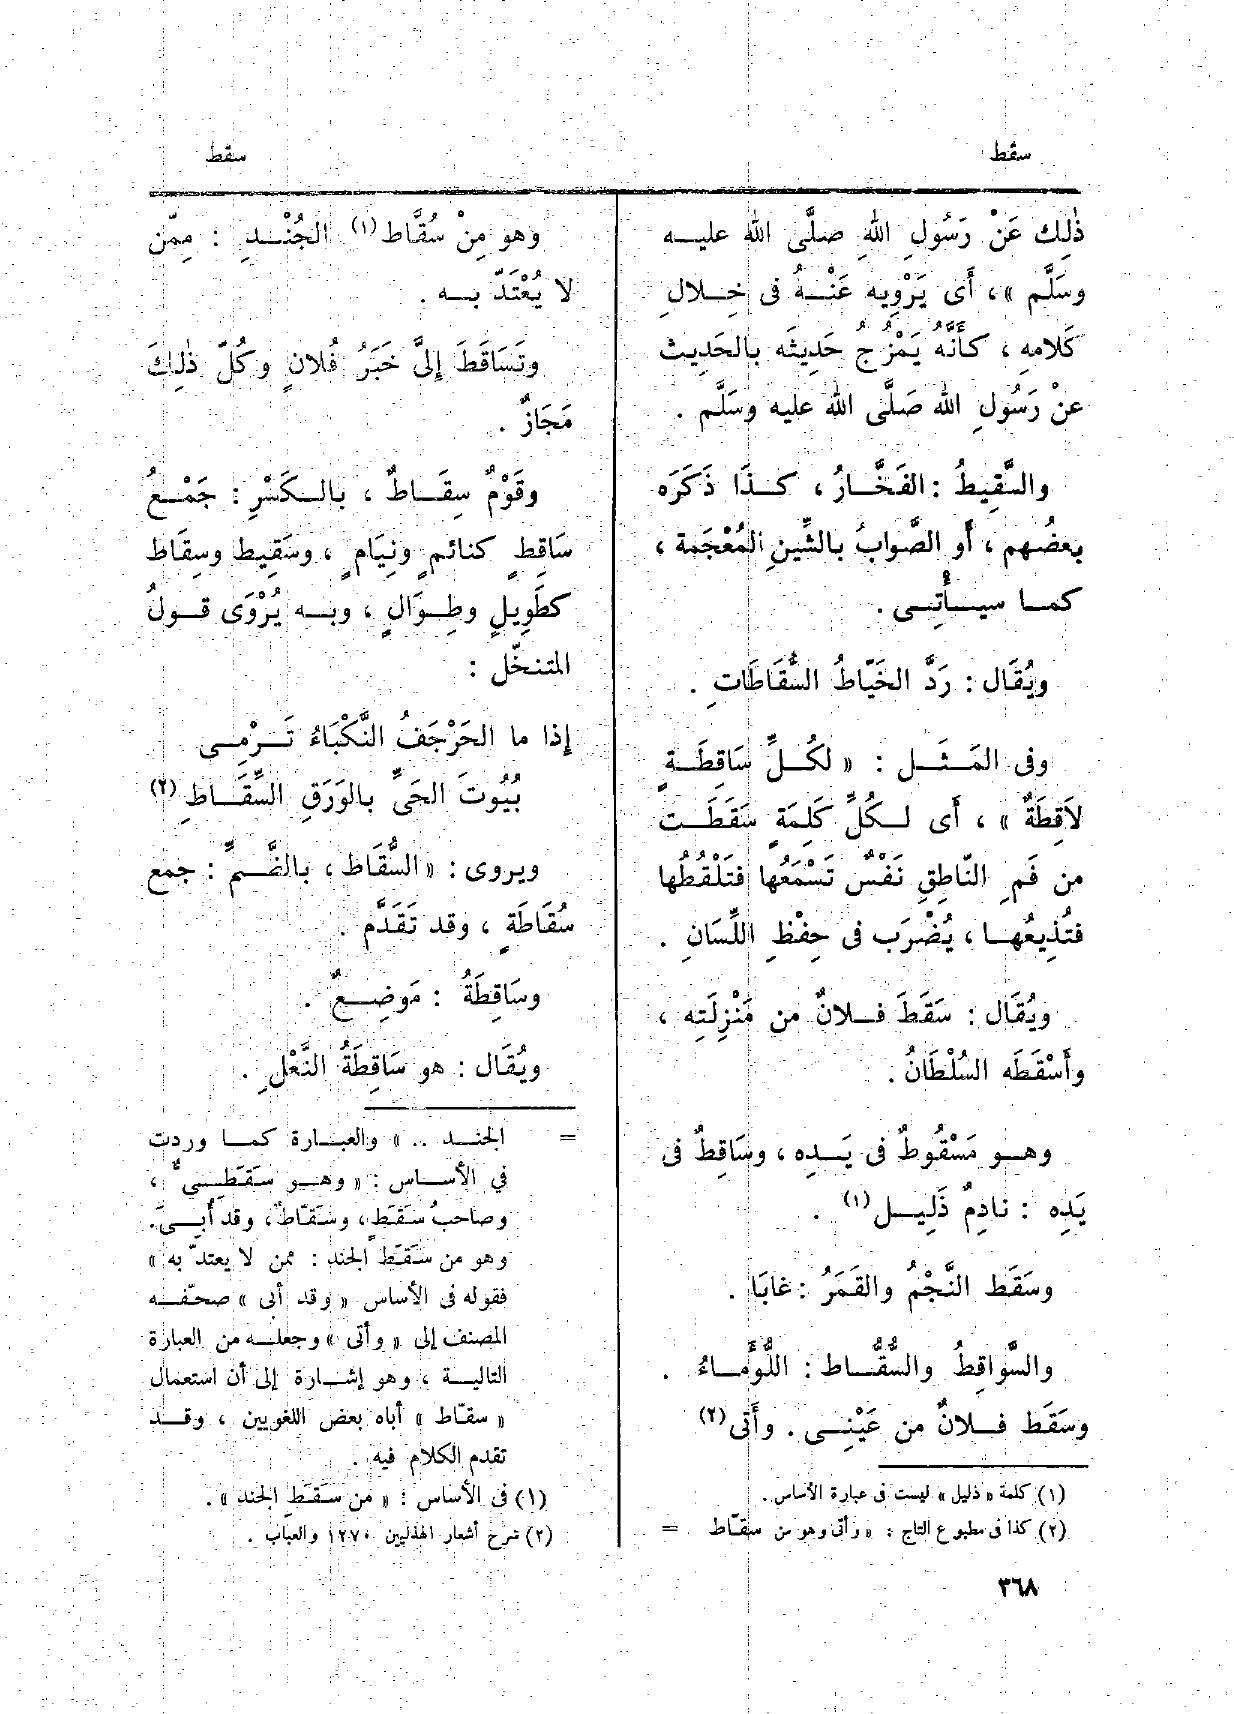 سقط
سقط
ذٰلِك عَنْ رَسُولِ اللهِ صلَّى اللهُ عليـه
وسَلَّم »، أَى يَرْوِيه عَنْـهُ فى خِـلالِ
كَلامهِ ، كأَنَّهُ يَمْزجُ حَدِيثَه بالحَدِيث
عنْ رَسُولِ الله صَلَّى الله عليه وسَلَّم .
والسَّقِيطُ : الفَخَّـارُ ، كـذَا ذَكَرَه
بعضُهم ، أَو الصَّوابُ بالشِّينِ المُعْجَمة ،
كمـا سيـأْتِـى .
ويُقَال : رَدَّ الخَيّاطُ السُّقَاطَاتِ .
وفى المَثَـل : « لكُـلِّ سَاقِطَـةٍ
لاَقِطَةٌ » ، أَى لـكُلِّ كَلِمَةٍ سَقَطَـت
من فَمِ النّاطِقِ نَفْسٌ تَسْمَعُها فتَلْقُطُها
فتُذِيعُهـا ، يُضْرَب فى حِفْظِ اللِّسَانِ .
ويُقَال : سَقَطَ فـلانٌ من مَنْزِلَتِه ،
وأَسْقَطَه السُلْطَانُ .
وهـو مَسْقُوطٌ فى يَـدِه ، وسَاقِطٌ فى
يَدِه : نادِمٌ ذَلِيـل(١) .
وسَقَط النَّجْمُ والقَمَرُ : غابَا .
والسَّواقِطُ والسُّقَّـاط : اللُّؤَمـاءُ .
وسَقَط فـلانٌ من عَيْنِـى . وأَتَى(٢)
(١) كلمة « ذليل » ليست فى عبارة الأساس .
(٢) كذا فى مطبوع التاج : « وأتى وهو من سقّاط =
وهو مِنْ سُقَّاط(١) الجُنْـدِ : مِمّن
لا يُعْتَدّ بـه .
وتَسَاقَطَ إِلىَّ خَبَرُ فُلانٍ وكُلّ ذٰلِكَ
مَجَازٌ .
وقَوْمٌ سِقَـاطٌ ، بالـكَسْرِ : جَمْـعُ
سَاقِطٍ كنائمٍ ونِيَامٍ ، وسَقِيط وسِقَاط
كطَوِيلٍ وطِـوَالٍ ، وبـه يُرْوَى قـولُ
المتنخّل :
إِذا ما الحَرْجَفُ النَّكْبَاءُ تَـرْمِـى
بُيُوتَ الحَىِّ بالوَرَقِ السِّقَـاطِ(٢)
ويروى : « السُّقَاط ، بالضَّـمِّ : جمع
سُقَاطَةٍ ، وقد تَقَدَّم .
وسَاقِطَةُ : مَوضِـعٌ .
ويُقَال : هو سَاقِطَةُ النَّعْلِ .
= الجنـد .. » والعبـارة كمـا وردت
في الأسـاس : « وهـو سَقَطِـىٌّ ،
وصاحبُ سَقَطٍ ، وسَقّاطٌ ، وقد أُبِـىَ .
وهو من سَقَط الجند : ممن لا يعتدّ به »
فقوله فى الأساس « وقد أبى » صحّفـه
المصنف إلى « وأتى » وجعلـه من العبارة
التاليـة ، وهو إشـارة إلى أن استعمال
« سقّاط » أباه بعض اللغويين ، وقـد
تقدم الكلام فيه .
(١) فى الأساس : « من سَقَطِ الجند » .
(٢) شرح أشعار الهذليين ١٢٧٠ والعباب .
٣٦٨